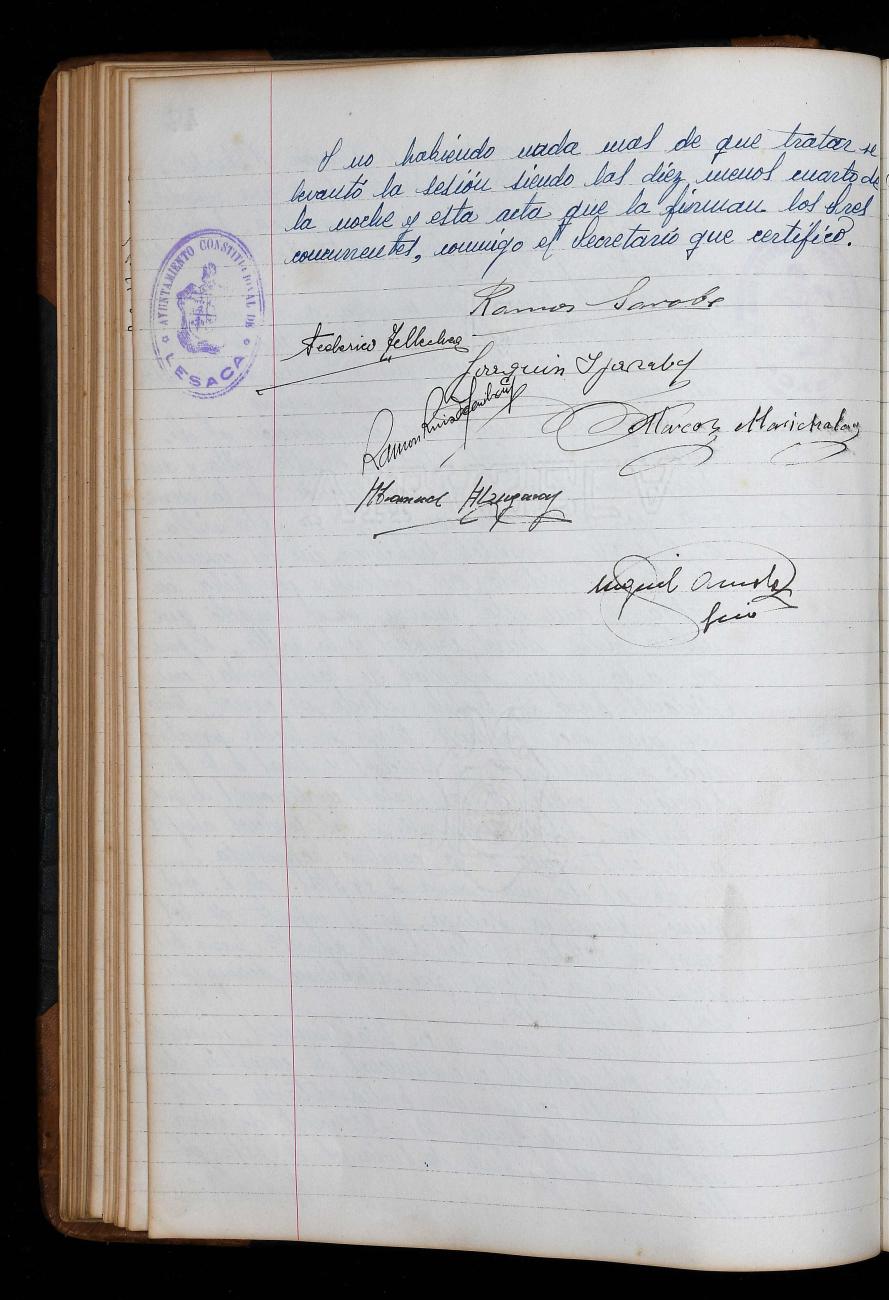 Y no habiendo nada mas de que tratar se
levantó la sesión siendo las diez menos cuarto de
la noche y esta acta que la firman los Sres
concurrentes, conmigo el Secretario que certifico.
AYUNTAMIENTO CONSTITUCIONAL DE
LESACA
Ramon Sarobe
Federico Tellechea
Joaquin Yparabe
Ramon Ruiz
Marcos Marichalar
Manuel
Miguel
Srio